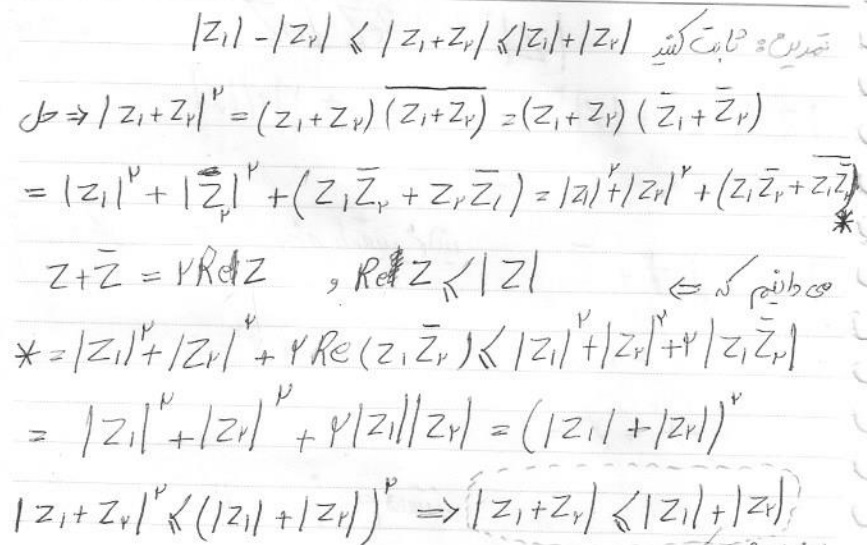 تمرین: ثابت کنید |z₁| - |z₂| ≤ |z₁+z₂| ≤ |z₁|+|z₂|
حل ⇒ |z₁+z₂|^۲ = (z₁+z₂) \overline{(z₁+z₂)} = (z₁+z₂)(z̄₁+z̄₂)
= |z₁|^۲ + |z̄₂|^۲ + (z₁z̄₂ + z₂z̄₁) = |z₁|^۲+|z₂|^۲ + (z₁z̄₂ + \overline{z₁z̄₂}) *
می دانیم که ⇐ z+z̄ = ۲Re z , Re z ≤ |z|
* = |z₁|^۲+|z₂|^۲ + ۲Re(z₁z̄₂) ≤ |z₁|^۲+|z₂|^۲+۲|z₁z̄₂|
= |z₁|^۲+|z₂|^۲ + ۲|z₁||z₂| = (|z₁|+|z₂|)^۲
|z₁+z₂|^۲ ≤ (|z₁|+|z₂|)^۲ ⇒ |z₁+z₂| ≤ |z₁|+|z₂|